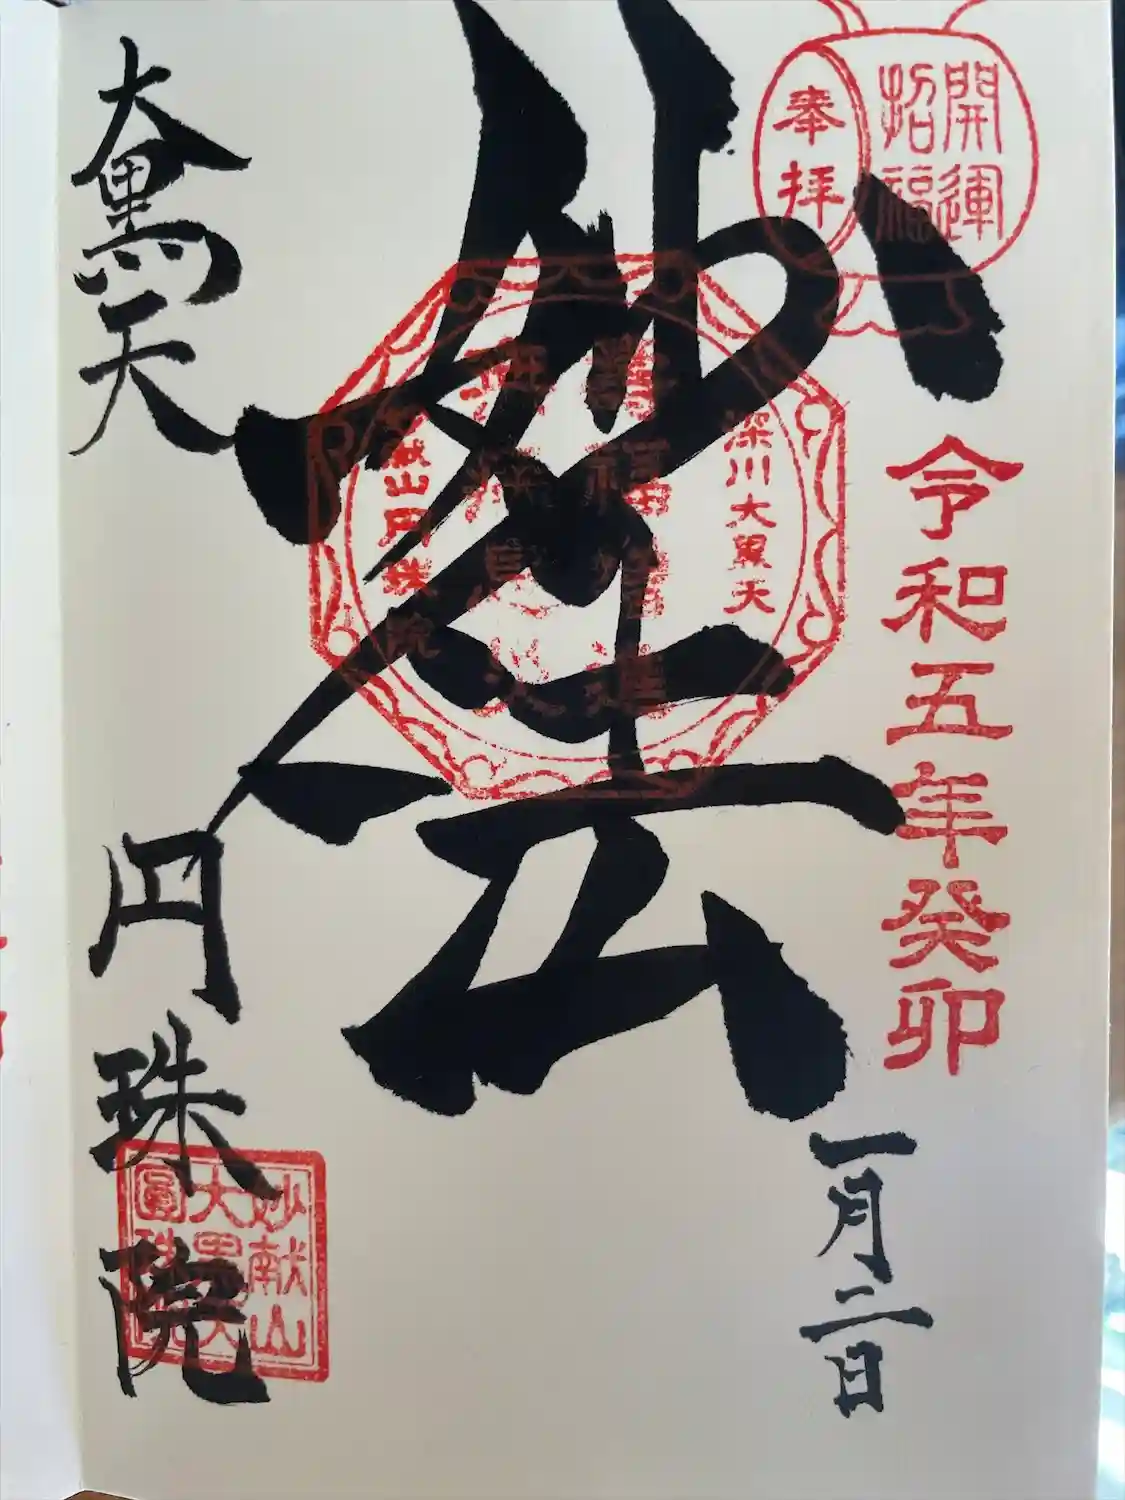 開運
招福
奉拝
令和五年癸卯
一月二日
妙法
深川大黒天
妙献山円珠院
大黒天
円珠院
妙献山
大黒天
圓珠院